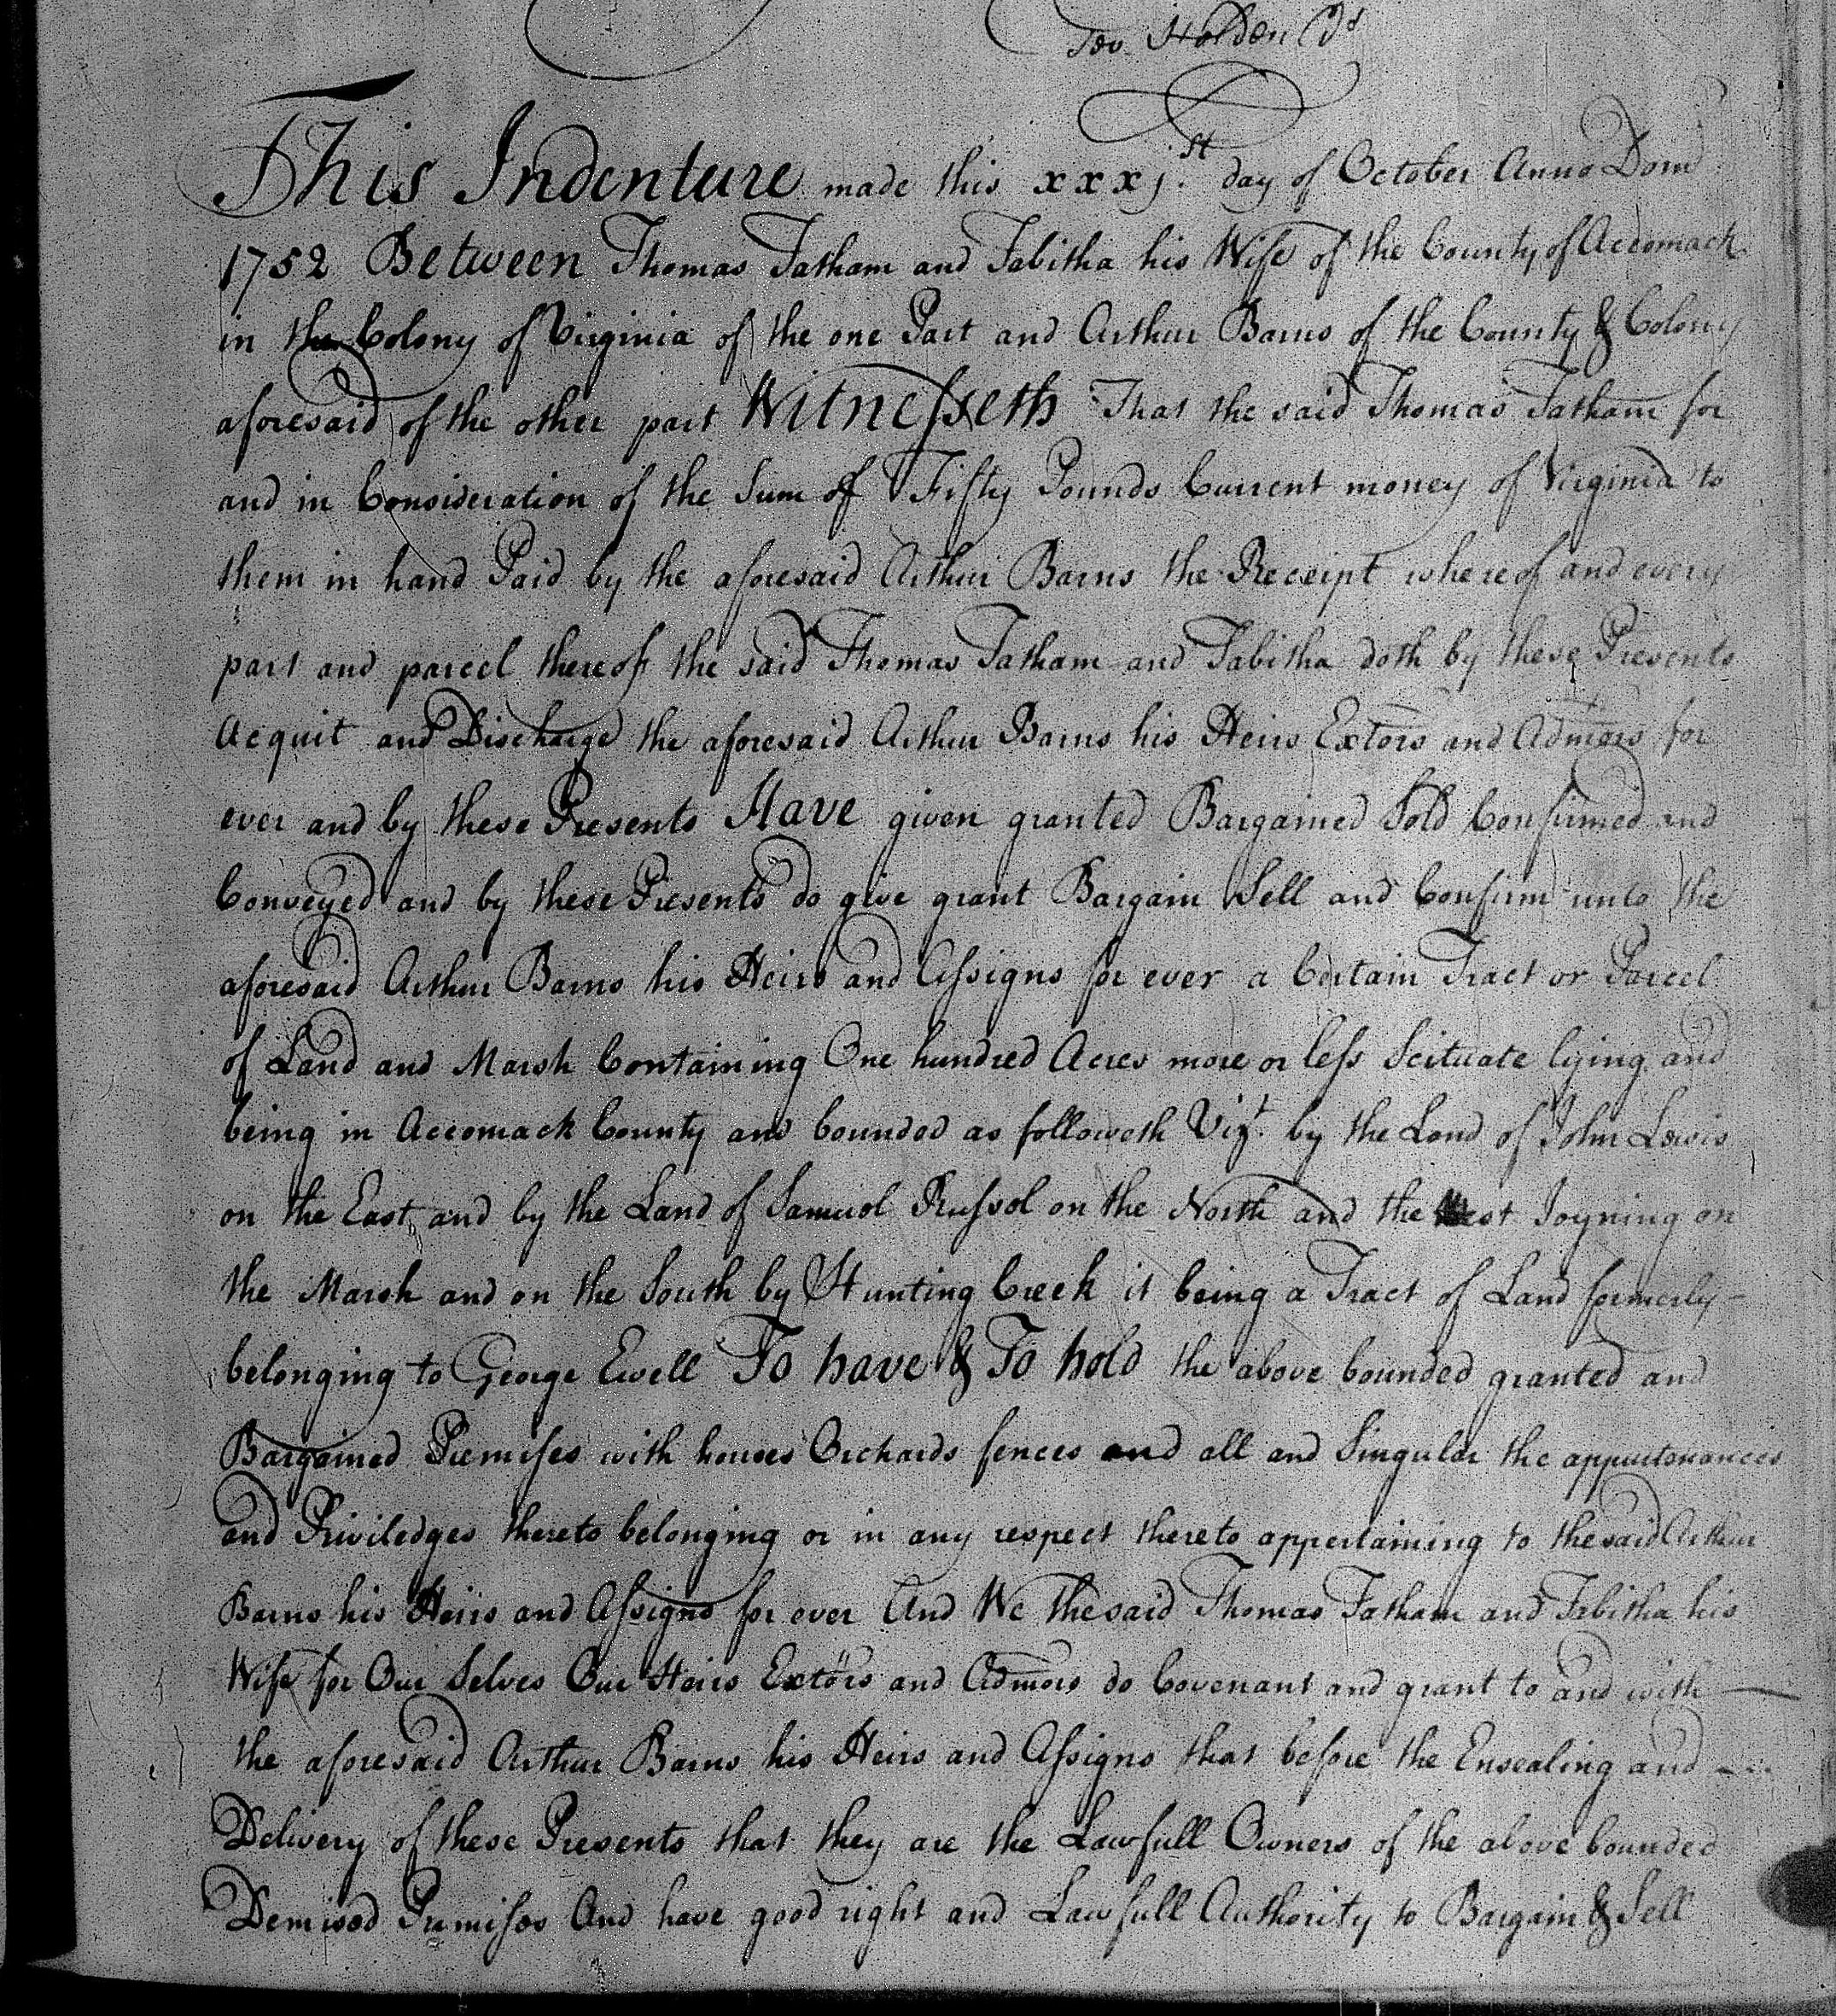 Holden
This Indenture made this xxxj.st day of October Anno Dom
1752 Between Thomas Tatham and Tabitha his Wife of the County of Accomack
in the Colony of Virginia of the one Part and Arthur Barns of the County & Colony
aforesaid of the other part Witnesseth That the said Thomas Tatham for
and in Consideration of the Sum of Fifty Pounds Current money of Virginia to
them in hand Paid by the aforesaid Arthur Barns the Receipt whereof and every
part and parcel thereof the said Thomas Tatham and Tabitha doth by these Presents
Acquit and Discharge the aforesaid Arthur Barns his Heirs Extors and Admors for
ever and by these Presents Have given granted Bargained Sold Confirmed and
Conveyed and by these Presents do give grant Bargain Sell and Confirm unto the
aforesaid Arthur Barns his Heirs and Assigns for ever a Certain Tract or Parcel
of Land and Marsh Containing One hundred Acres more or less Scituate lying and
being in Accomack County and bounded as followeth Vizt. by the Land of John Lewis
on the East and by the Land of Samuel Russel on the North and the West Joyning on
the Marsh and on the South by Hunting Creek it being a Tract of Land formerly
belonging to George Ewell To have & To hold the above bounded granted and
Bargained Premises with houses Orchards fences and all and Singular the appurtenances
and Priviledges thereto belonging or in any respect thereto appertaining to the said Arthur
Barns his Heirs and Assigns for ever And We the said Thomas Tatham and Tabitha his
Wife for Our Selves Our Heirs Extors and Admors do Covenant and grant to and with
the aforesaid Arthur Barns his Heirs and Assigns that before the Ensealing and
Delivery of these Presents that they are the Lawfull Owners of the above bounded
Demised Premises And have good right and Lawfull Authority to Bargain & Sell